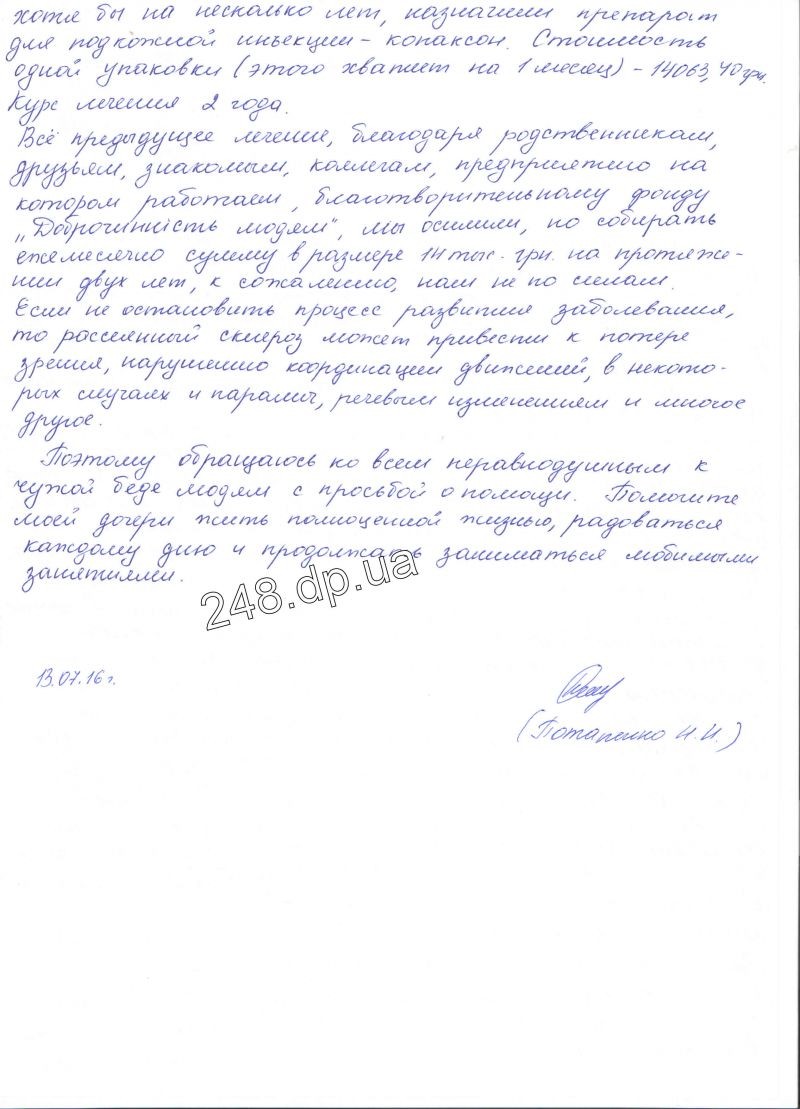 хотя бы на несколько лет, назначили препарат
для подкожной инъекции - копаксон. Стоимость
одной упаковки (этого хватит на 1 месяц) - 14063,40 грн.
Курс лечения 2 года.
Всё предыдущее лечение, благодаря родственникам,
друзьям, знакомым, коллегам, предприятию на
котором работаем, благотворительному фонду
„Доброчинність людям", мы осилили, но собирать
ежемесячно сумму в размере 14 тыс. грн. на протяже-
нии двух лет, к сожалению, нам не по силам.
Если не остановить процесс развития заболевания,
то рассеянный склероз может привести к потере
зрения, нарушению координации движений, в некото-
рых случаях и паралич, речевым изменениям и многое
другое.
Поэтому обращаюсь ко всем неравнодушным к
чужой беде людям с просьбой о помощи. Помогите
моей дочери жить полноценной жизнью, радоваться
каждому дню и продолжать заниматься любимыми
занятиями.
248.dp.ua
13.07.16 г.
(Потапенко И.И.)